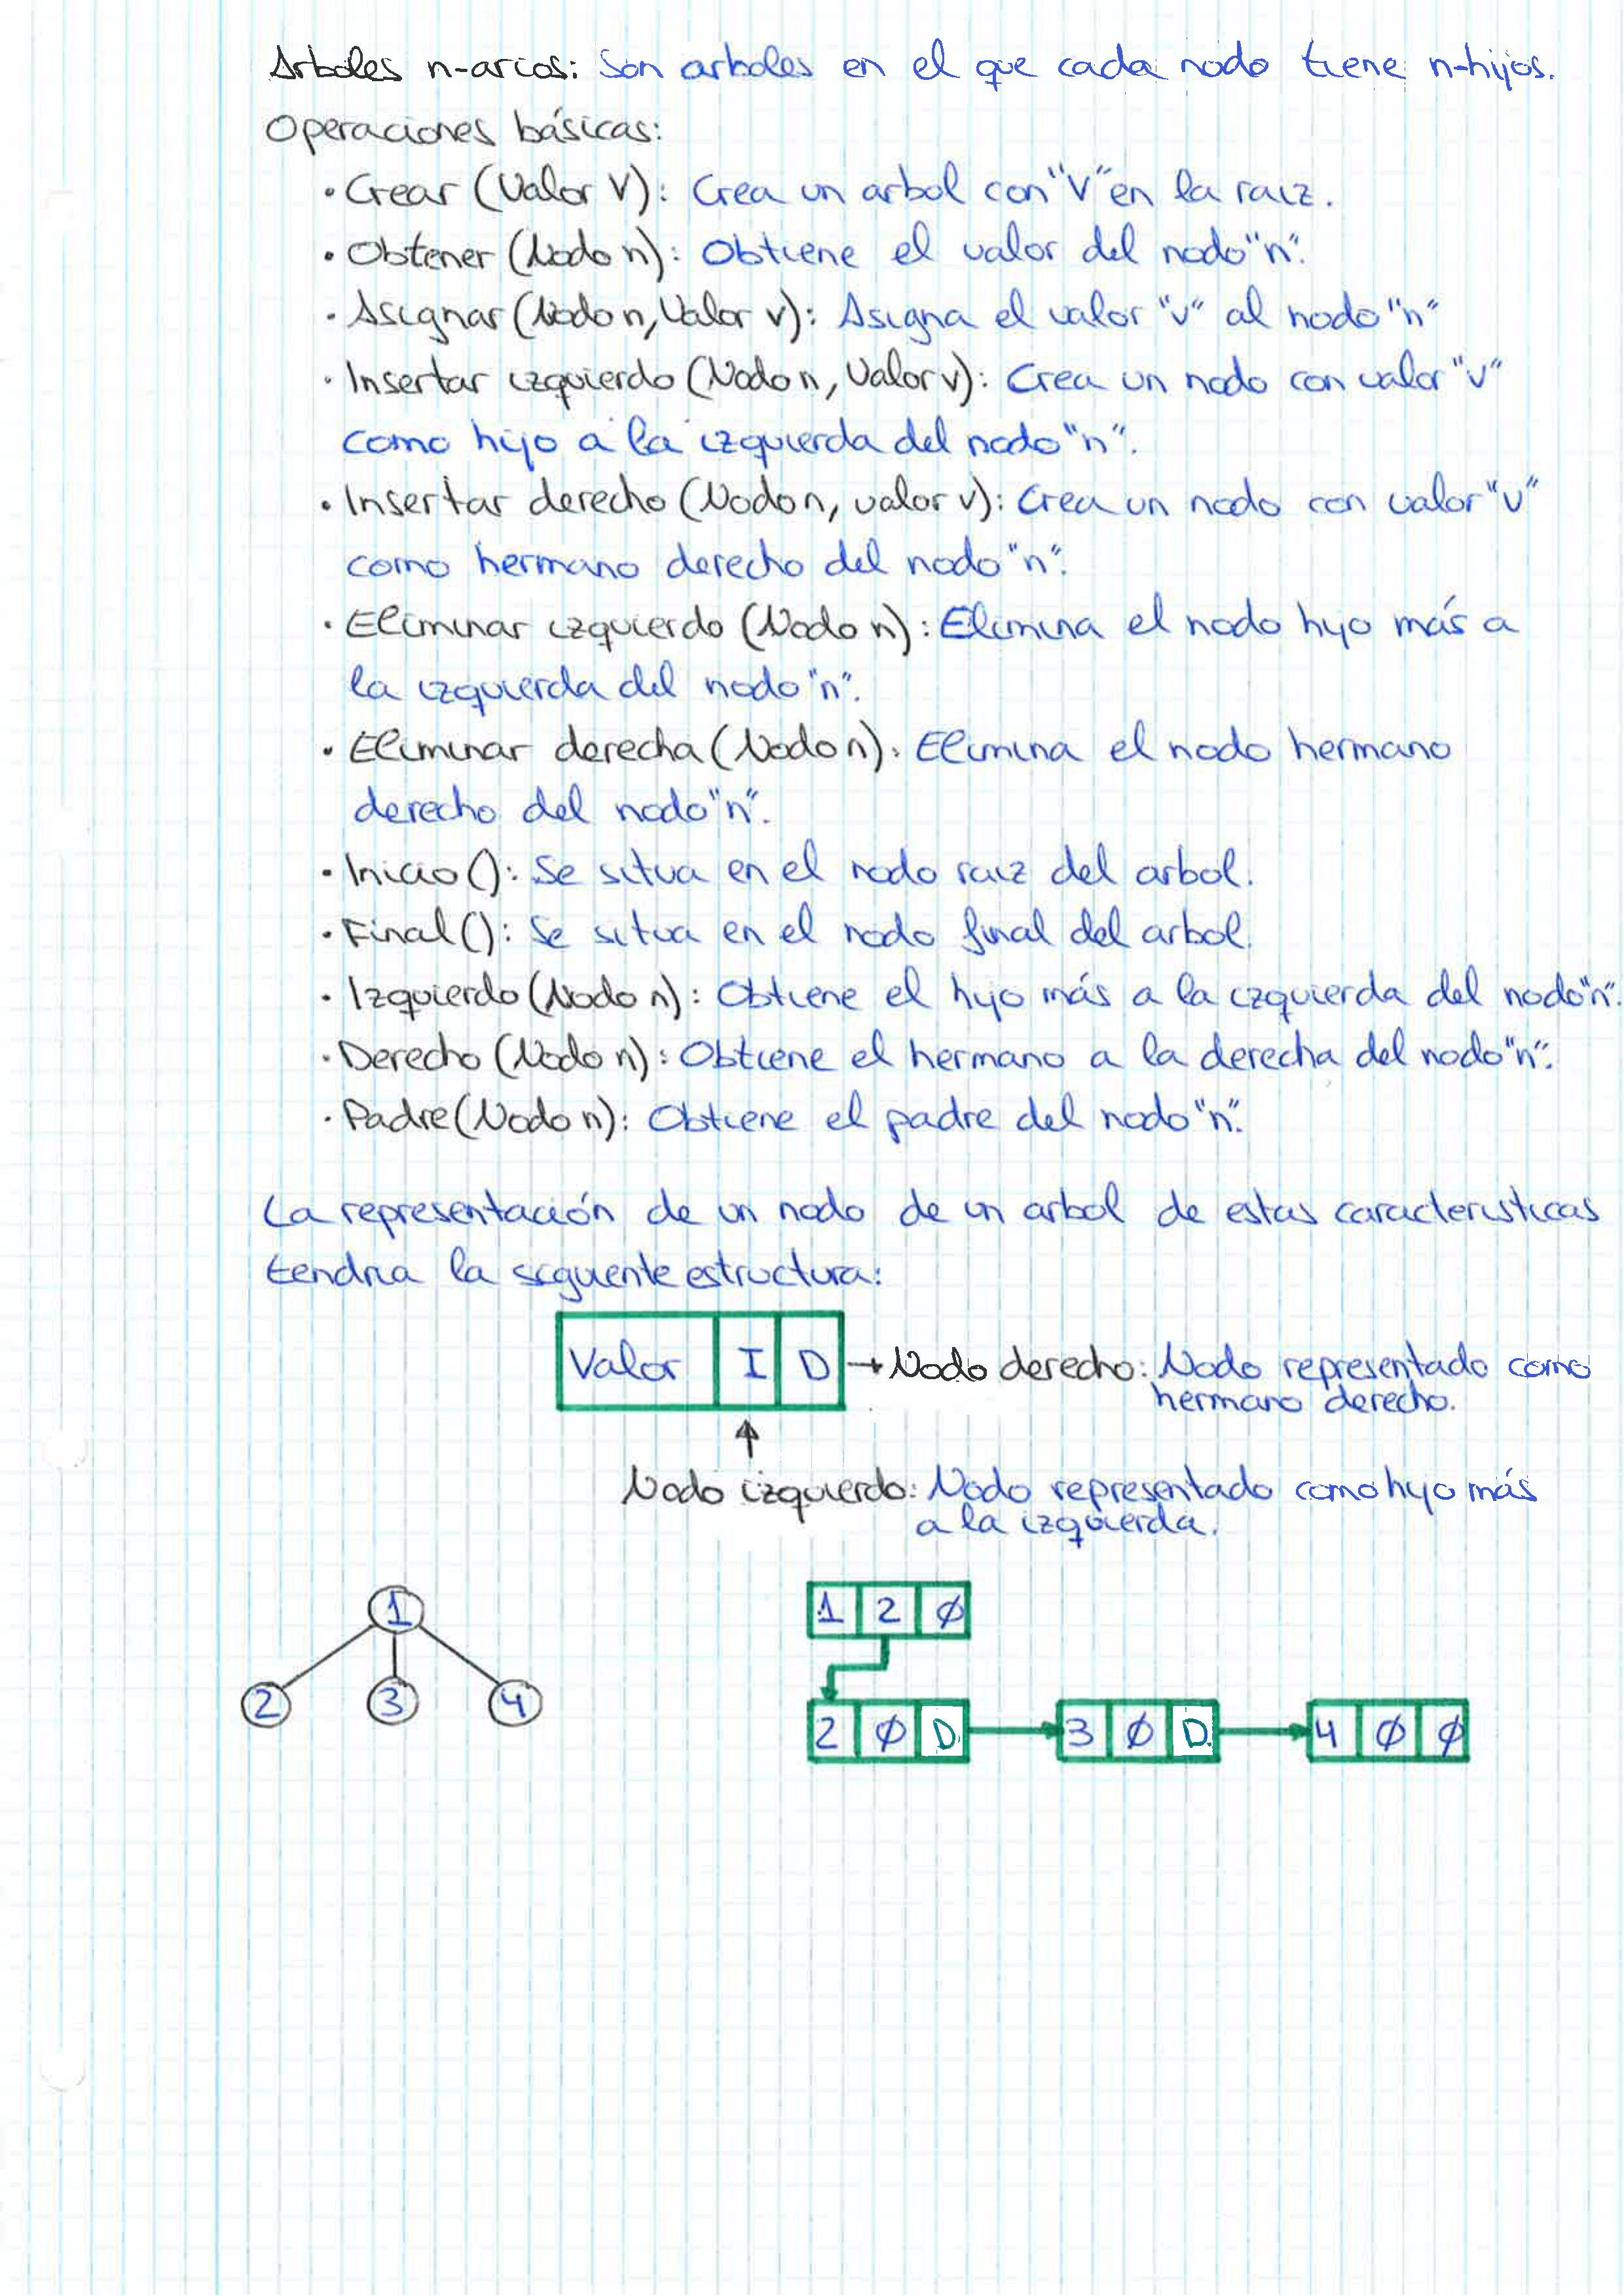 Arboles n-arios: Son arboles en el que cada nodo tiene n-hijos.
Operaciones básicas:
· Crear (Valor V): Crea un arbol con "V" en la raiz.
· Obtener (Nodo n): Obtiene el valor del nodo "n".
· Asignar (Nodo n, Valor v): Asigna el valor "v" al nodo "n"
· Insertar izquierdo (Nodo n, Valor v): Crea un nodo con valor "v"
como hijo a la izquierda del nodo "n".
· Insertar derecho (Nodo n, valor v): Crea un nodo con valor "v"
como hermano derecho del nodo "n".
· Eliminar izquierdo (Nodo n): Elimina el nodo hijo más a
la izquierda del nodo "n".
· Eliminar derecha (Nodo n): Elimina el nodo hermano
derecho del nodo "n".
· Inicio (): Se situa en el nodo raiz del arbol.
· Final (): Se situa en el nodo final del arbol.
· Izquierdo (Nodo n): Obtiene el hijo más a la izquierda del nodo "n".
· Derecho (Nodo n): Obtiene el hermano a la derecha del nodo "n".
· Padre (Nodo n): Obtiene el padre del nodo "n".
La representación de un nodo de un arbol de estas caracteristicas
tendria la siguiente estructura:
Valor I D → Nodo derecho: Nodo representado como
hermano derecho.
Nodo izquierdo: Nodo representado como hijo más
a la izquierda.
1
1 2 Ø
2 3 4
2 Ø D 3 Ø D 4 Ø Ø